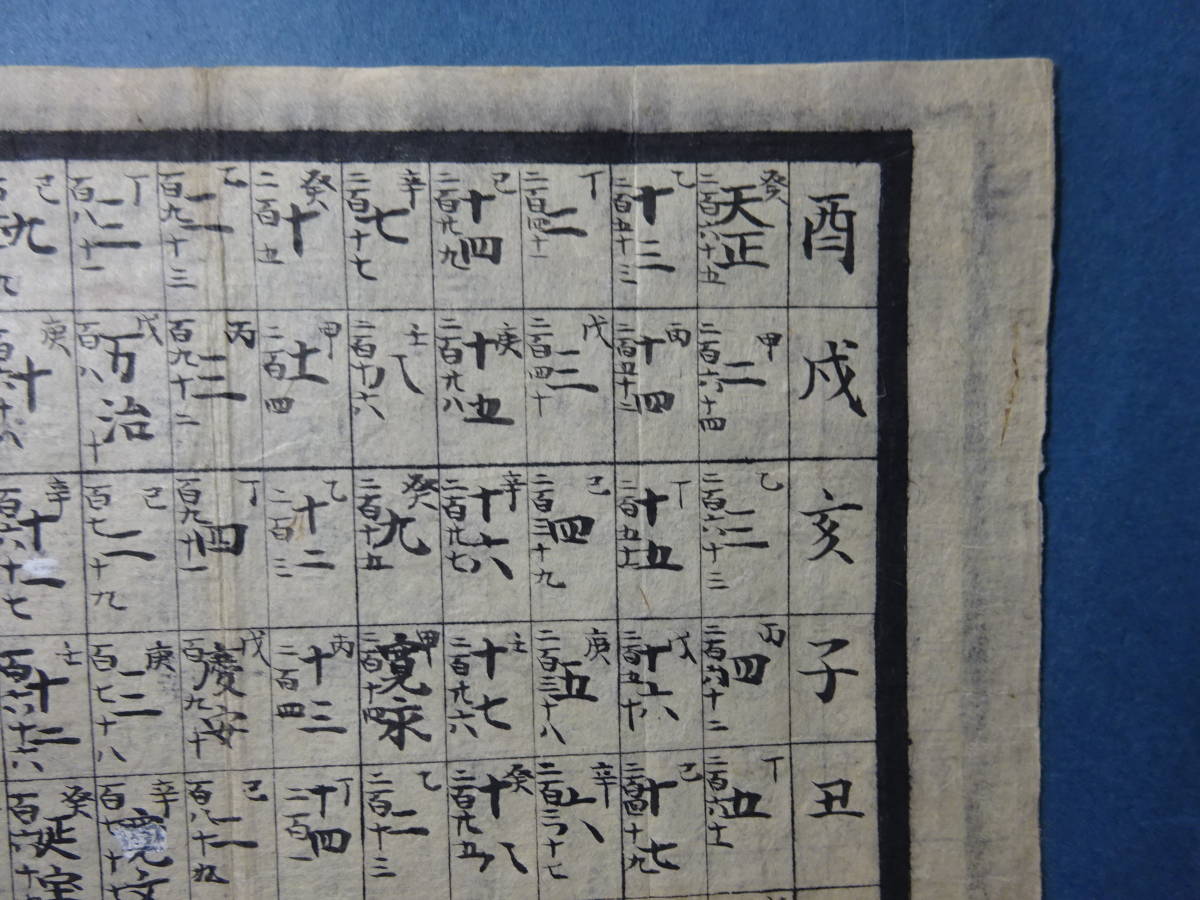 酉
戌
亥
子
丑
癸
天正
二百六十五
甲
二
二百六十四
乙
三
二百六十三
丙
四
二百六十二
丁
五
二百六十一
乙
十三
二百五十三
丙
十四
二百五十二
丁
十五
二百五十一
戊
十六
二百五十
己
十七
二百四十九
丁
二
二百四十一
戊
三
二百四十
己
四
二百三十九
庚
五
二百三十八
辛
六
二百三十七
己
十四
二百廿九
庚
十五
二百廿八
辛
十六
二百廿七
壬
十七
二百廿六
癸
十八
二百廿五
辛
七
二百十七
壬
八
二百十六
癸
九
二百十五
甲
寛永
二百十四
乙
二
二百十三
癸
十
二百五
甲
十一
二百四
乙
十二
二百三
丙
十三
二百四
丁
十四
二百一
乙
二
百九十三
丙
三
百九十二
丁
四
百九十一
戊
慶安
百九十
己
二
百八十九
丁
三
百八十一
戊
万治
百八十
己
二
百七十九
庚
三
百七十八
辛
寛文
己
九
庚
十
百六十八
辛
十一
百六十七
壬
十二
百六十六
癸
延宝